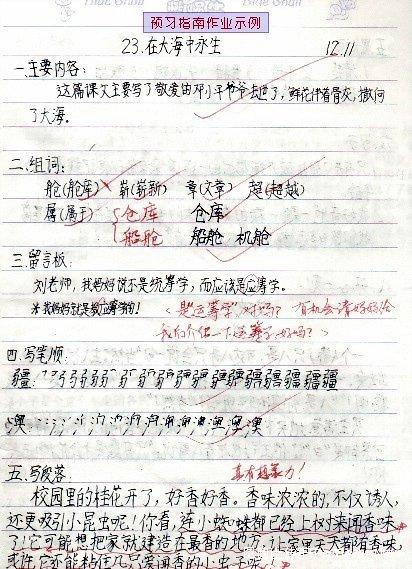 预习指南作业示例
23.在大海中永生 12.11
一.主要内容:
这篇课文主要写了敬爱的邓小平爷爷去世了,鲜花伴着骨灰,撒向
了大海。
二.组词:
舱(舱库) 崭(崭新) 章(文章) 超(超越)
属(属于) 仓库 仓库
船舱 船舱 机舱
三.留言板:
刘老师,我妈妈说不是统筹学,而应该是应筹学。
我妈妈就是教应筹学的!
是"运筹学",对吗? 有机会请妈妈给
我们介绍一下运筹学好吗?
四.写笔顺:
疆:
澳:
五.写段落 真有想象力!
校园里的桂花开了,好香好香。香味浓浓的,不仅诱人,
还更吸引小昆虫呢!你看,连小蜘蛛都已经上树来闻香味
了!它可能想把家就建造在最香的地方,让家里天天都有香味,
或许它还能粘住几只爱闻香的小虫子呢!